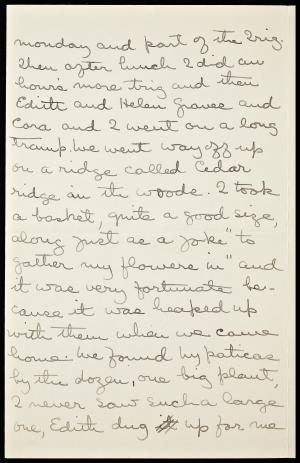 monday and part of the Trig.
Then after lunch I did an
hour's more trig and then
Edith and Helen Graves and
Cora and I went on a long
tramp. We went way off up
on a ridge called Cedar
ridge in the woods. I took
a basket, quite a good size,
along just as a joke "to
gather my flowers in" and
it was very fortunate be-
cause it was heaped up
with them when we came
home. We found hypaticas
by the dozen, one big plant,
I never saw such a large
one, Edith dug up for me